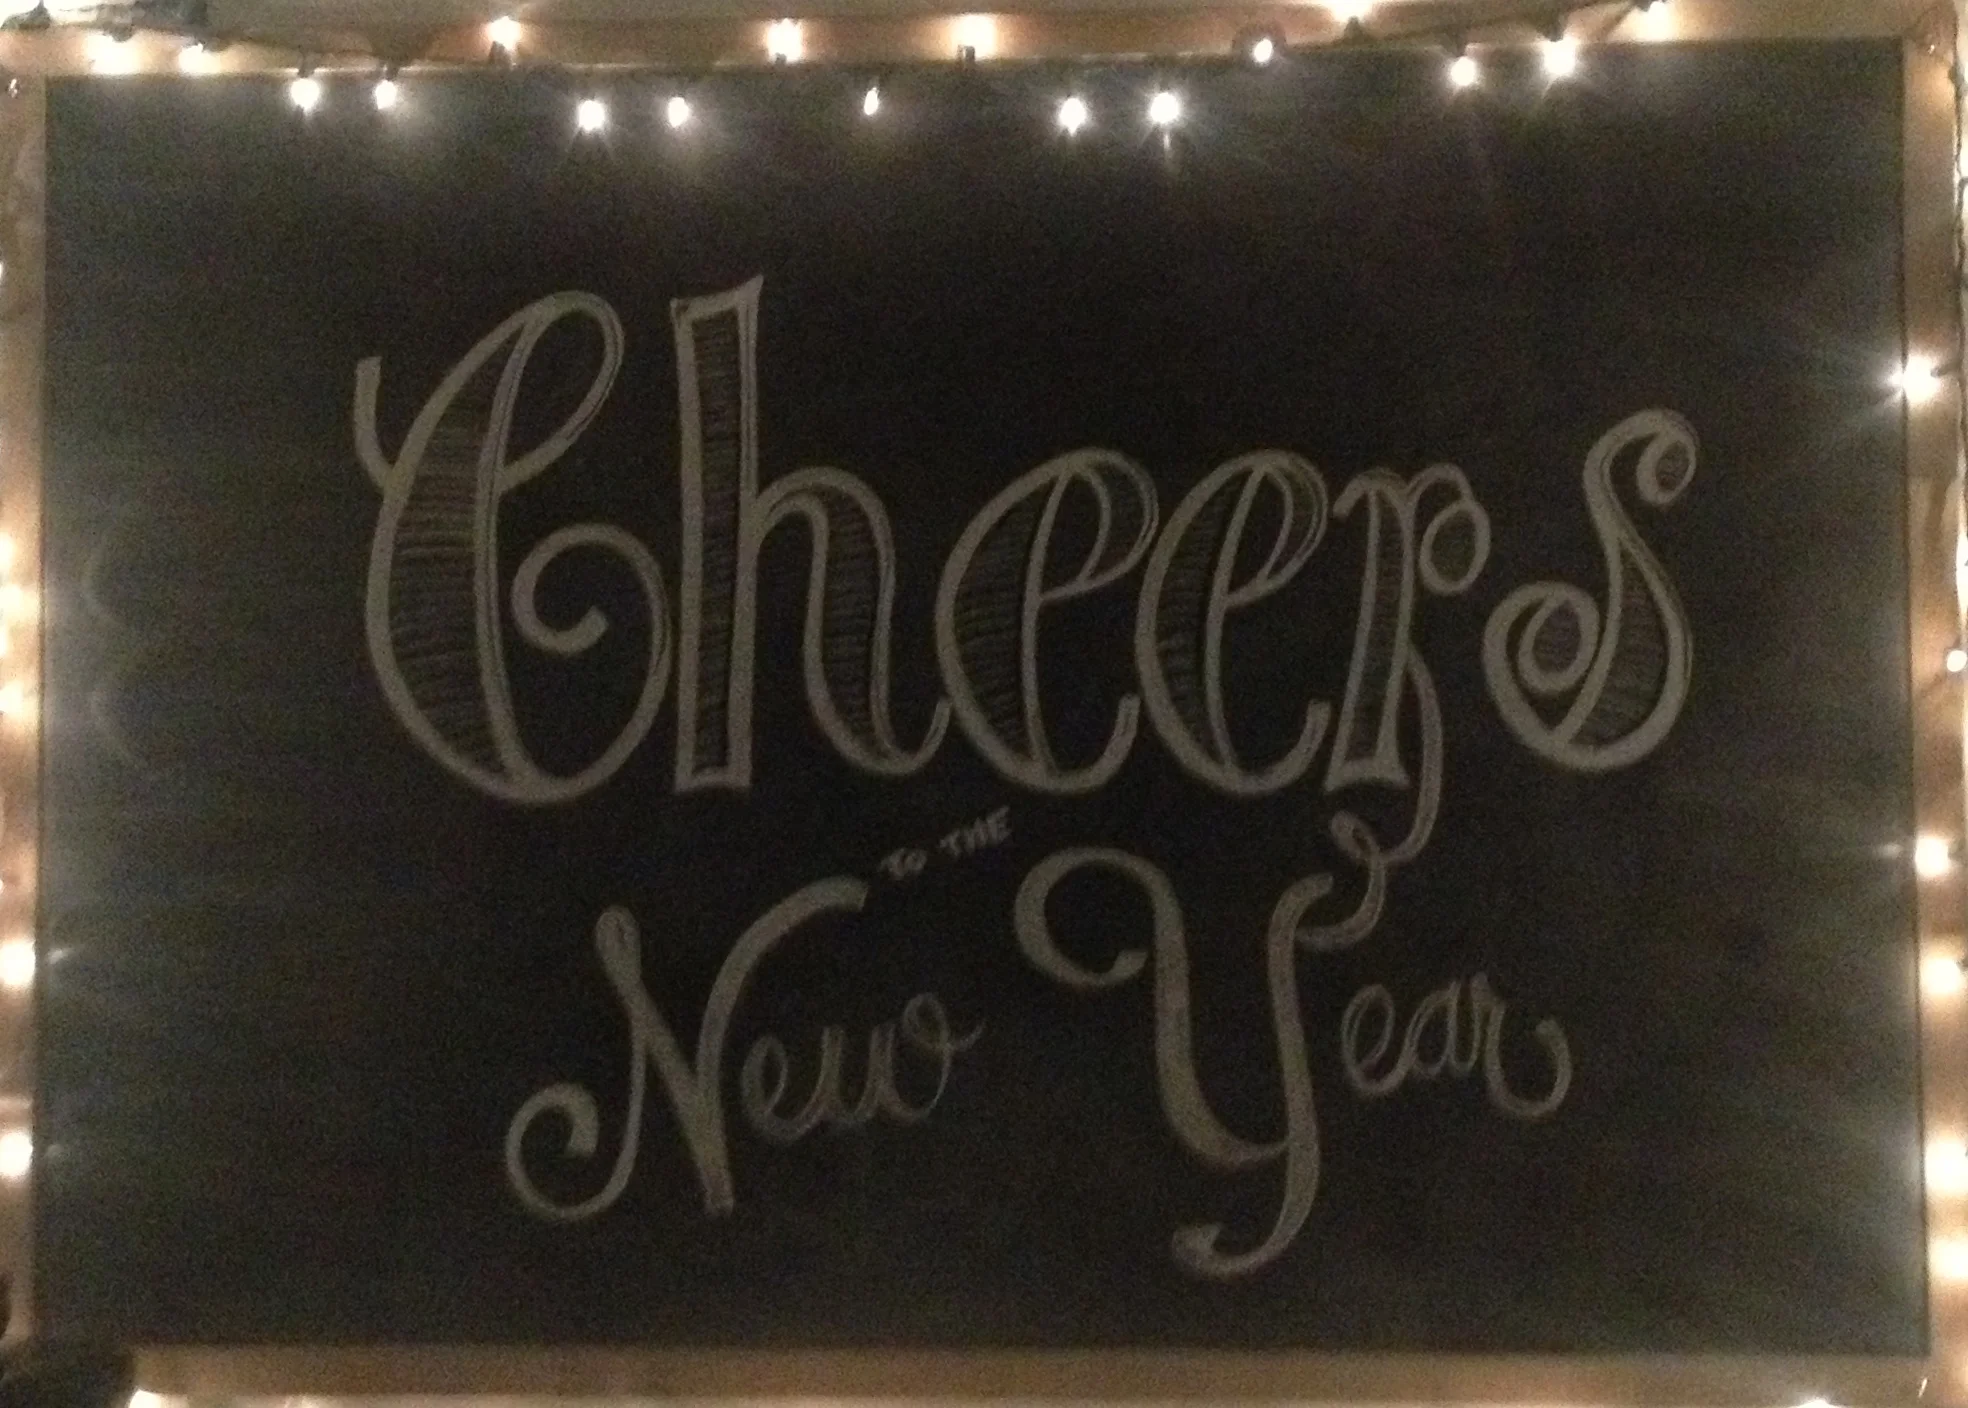 Cheers
TO THE
New Year